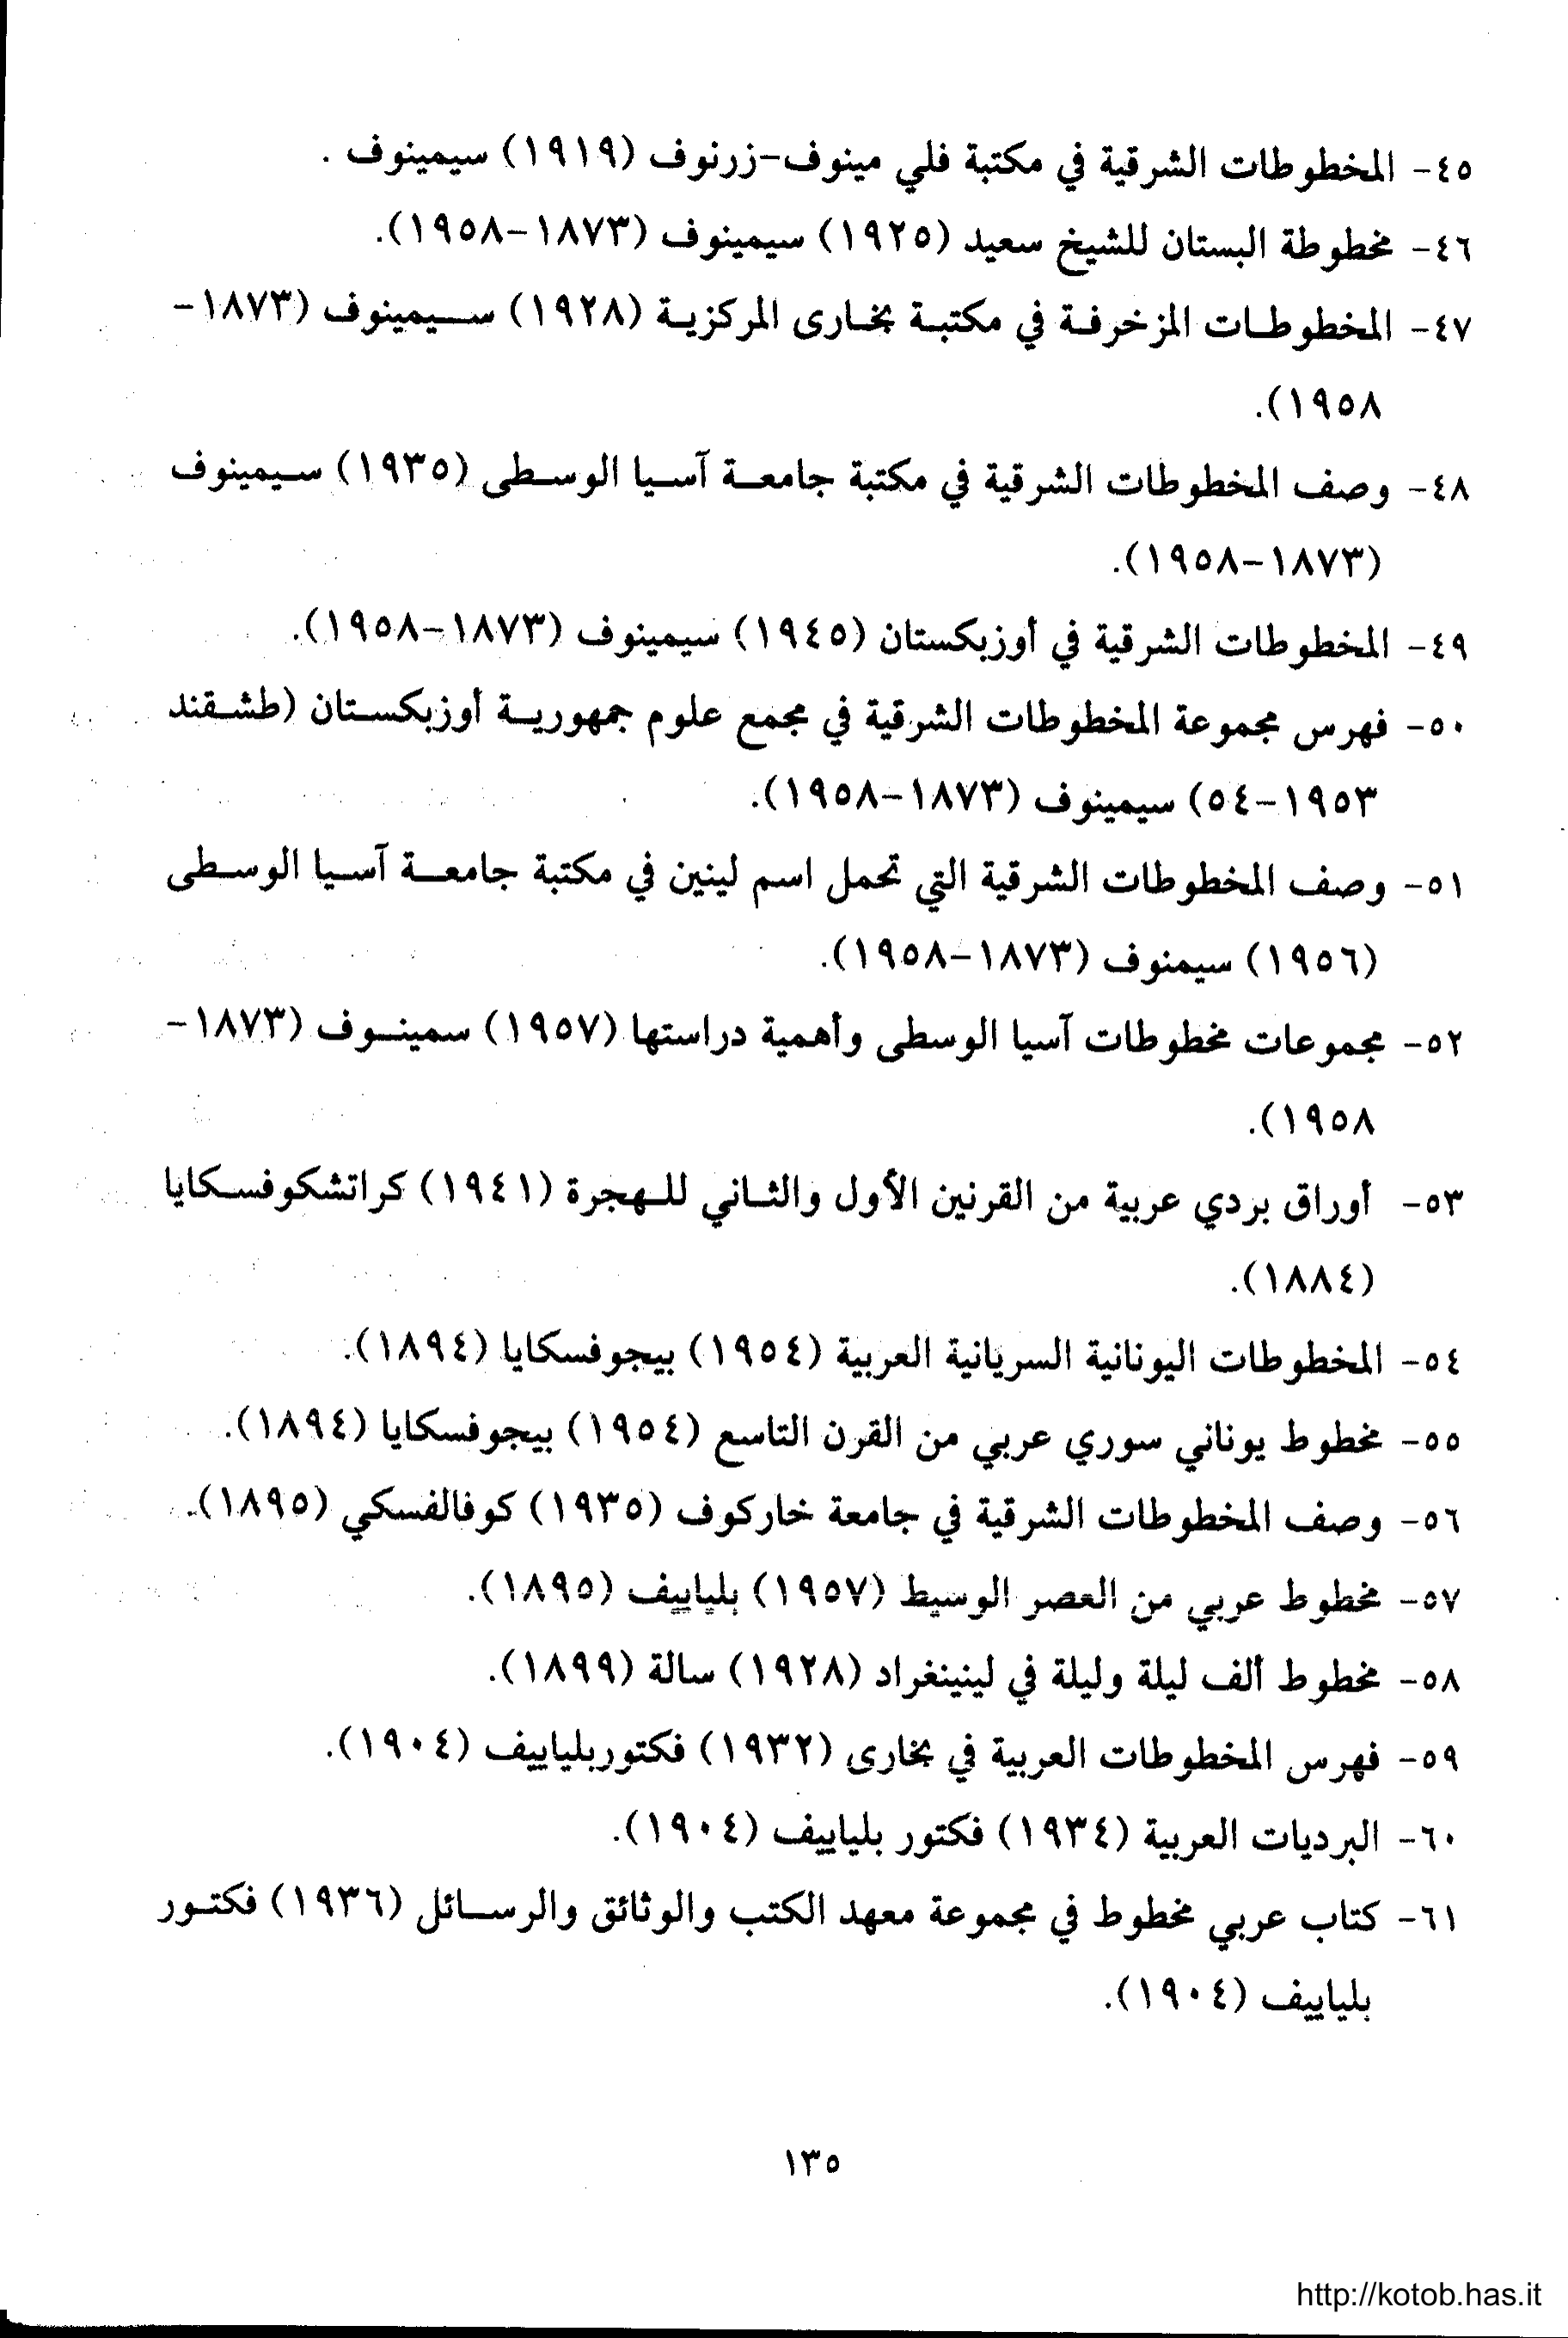 ٤٥- المخطوطات الشرقية في مكتبة فلي مينوف-زرنوف (١٩١٩) سيمينوف .
٤٦- مخطوطة البستان للشيخ سعيد (١٩٢٥) سيمينوف (١٨٧٣-١٩٥٨).
٤٧- المخطوطات المزخرفة في مكتبة بخارى المركزية (١٩٢٨) سيمينوف (١٨٧٣-
١٩٥٨).
٤٨- وصف المخطوطات الشرقية في مكتبة جامعة آسيا الوسطى (١٩٣٥) سيمينوف
(١٨٧٣-١٩٥٨).
٤٩- المخطوطات الشرقية في أوزبكستان (١٩٤٥) سيمينوف (١٨٧٣-١٩٥٨).
٥٠- فهرس مجموعة المخطوطات الشرقية في مجمع علوم جمهورية أوزبكستان (طشقند
١٩٥٣-٥٤) سيمينوف (١٨٧٣-١٩٥٨).
٥١- وصف المخطوطات الشرقية التي تحمل اسم لينين في مكتبة جامعة آسيا الوسطى
(١٩٥٦) سيمنوف (١٨٧٣-١٩٥٨).
٥٢- مجموعات مخطوطات آسيا الوسطى وأهمية دراستها (١٩٥٧) سمينوف (١٨٧٣-
١٩٥٨).
٥٣- أوراق بردي عربية من القرنين الأول والثاني للهجرة (١٩٤١) كراتشكوفسكايا
(١٨٨٤).
٥٤- المخطوطات اليونانية السريانية العربية (١٩٥٤) بيجوفسكايا (١٨٩٤).
٥٥- مخطوط يوناني سوري عربي من القرن التاسع (١٩٥٤) بيجوفسكايا (١٨٩٤).
٥٦- وصف المخطوطات الشرقية في جامعة خاركوف (١٩٣٥) كوفالفسكي (١٨٩٥).
٥٧- مخطوط عربي من العصر الوسيط (١٩٥٧) بلياييف (١٨٩٥).
٥٨- مخطوط ألف ليلة وليلة في لينينغراد (١٩٢٨) سالة (١٨٩٩).
٥٩- فهرس المخطوطات العربية في بخارى (١٩٣٢) فكتوربلياييف (١٩٠٤).
٦٠- البرديات العربية (١٩٣٤) فكتور بلياييف (١٩٠٤).
٦١- كتاب عربي مخطوط في مجموعة معهد الكتب والوثائق والرسائل (١٩٣٦) فكتور
بلياييف (١٩٠٤).
١٣٥
http://kotob.has.it